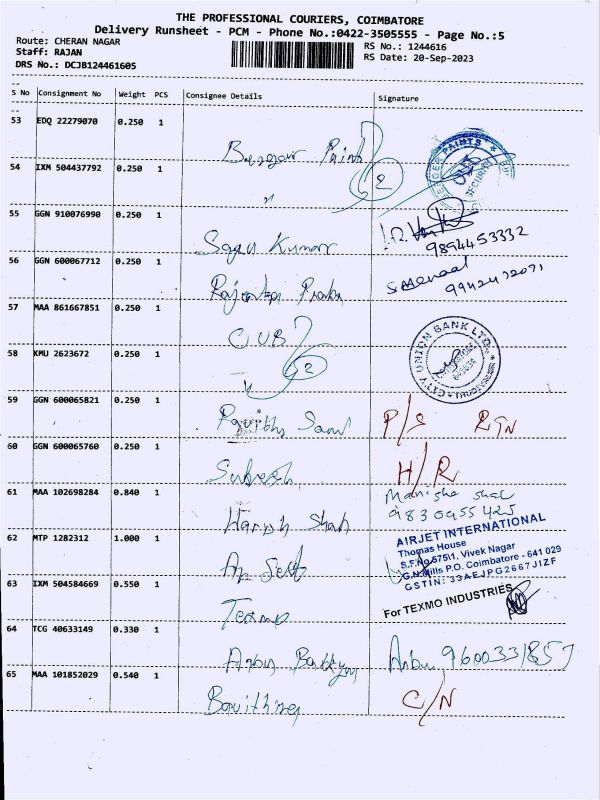 THE PROFESSIONAL COURIERS, COIMBATORE
Delivery Runsheet - PCM - Phone No.:0422-3505555 - Page No.:5
Route: CHERAN NAGAR
Staff: RAJAN
DRS No.: DCJB124461605
RS No.: 1244616
RS Date: 20-Sep-2023
S No Consignment No Weight PCS Consignee Details Signature
53 EDQ 22279070 0.250 1
Paint
54 IXM 504437792 0.250 1
2
55 GGN 910076990 0.250 1
Kumar
9894453332
56 GGN 600067712 0.250 1
57 MAA 861667851 0.250 1
CUB
CITY UNION BANK LTD.
58 KMU 2623672 0.250 1
2
59 GGN 600065821 0.250 1
P/S
60 GGN 600065760 0.250 1
Suresh H/R
61 MAA 102698284 0.840 1
Manisha shal
9830955425
Harsh Shah
62 MTP 1282312 1.000 1
AIRJET INTERNATIONAL
Thomas House
S.F.No 575\1, Vivek Nagar
G.N.Mills P.O. Coimbatore - 641 029
GSTIN: 33AEJPG2667J1ZF
63 IXM 504584669 0.550 1
For TEXMO INDUSTRIES
Texmo
64 TCG 40633149 0.330 1
Anbu 9600331857
65 MAA 101852029 0.540 1
C/N